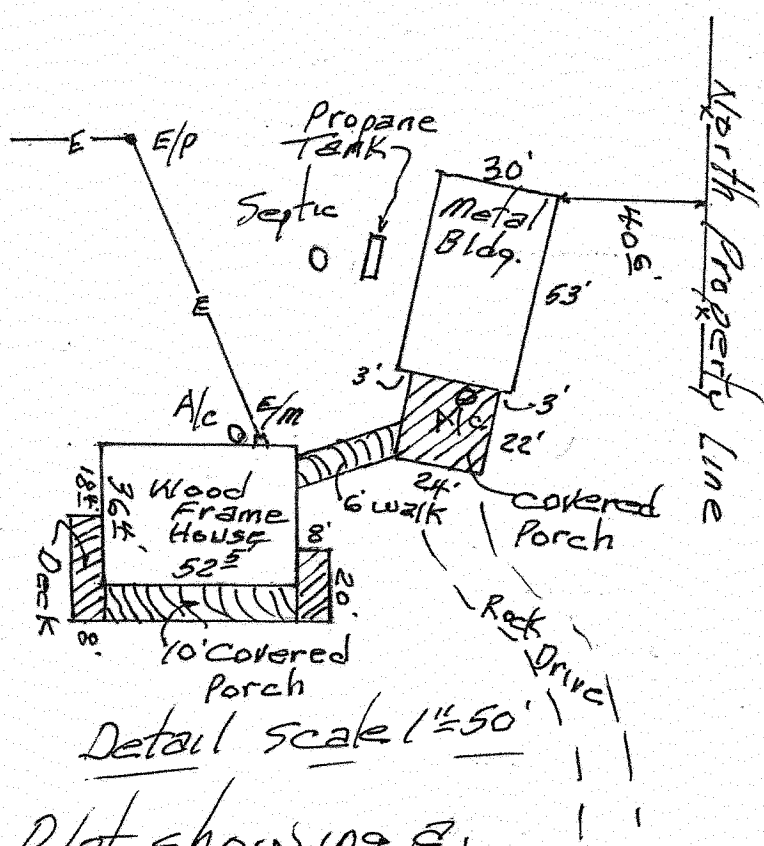 E
E/P
Propane
Tank
Septic
30'
Metal
Bldg.
40 6'
North Property Line
x
x
53'
E
3'
3'
A/c
E/m
A/c
22'
24'
6' walk
Covered
Porch
Wood
Frame
House
36 4'
52 5'
8'
20'
Deck
8'
10' Covered
Porch
Rock
Drive
Detail Scale 1"=50'
Plot showing